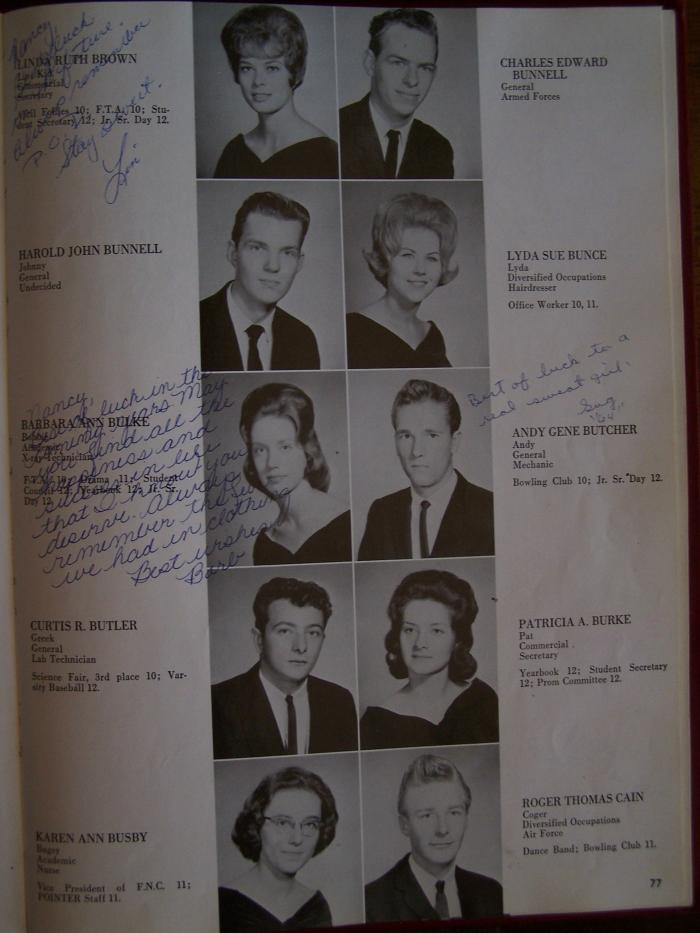 Nancy,
luck
future.
remember
Stay Sweet.
Lin
LINDA RUTH BROWN
Secretary
April Follies 10; F.T.A. 10; Stu-
dent Secretary 12; Jr. Sr. Day 12.
CHARLES EDWARD
BUNNELL
General
Armed Forces
HAROLD JOHN BUNNELL
Johnny
General
Undecided
LYDA SUE BUNCE
Lyda
Diversified Occupations
Hairdresser
Office Worker 10, 11.
Nancy,
luck in the
coming years May
you find all the
happiness and
success in life
that I know you
deserve. Always
remember the fun
we had in clothing
Best wishes
Barb
BARBARA ANN BULKE
Academic
X-ray Technician
F.N.C. 10; Drama 11; Student
Council 12; Yearbook 12; Jr. Sr.
Day 12.
Best of luck to a
real sweet girl.
'64
ANDY GENE BUTCHER
Andy
General
Mechanic
Bowling Club 10; Jr. Sr. Day 12.
CURTIS R. BUTLER
Greek
General
Lab Technician
Science Fair, 3rd place 10; Var-
sity Baseball 12.
PATRICIA A. BURKE
Pat
Commercial
Secretary
Yearbook 12; Student Secretary
12; Prom Committee 12.
KAREN ANN BUSBY
Bugsy
Academic
Nurse
Vice President of F.N.C. 11;
POINTER Staff 11.
ROGER THOMAS CAIN
Coger
Diversified Occupations
Air Force
Dance Band; Bowling Club 11.
77